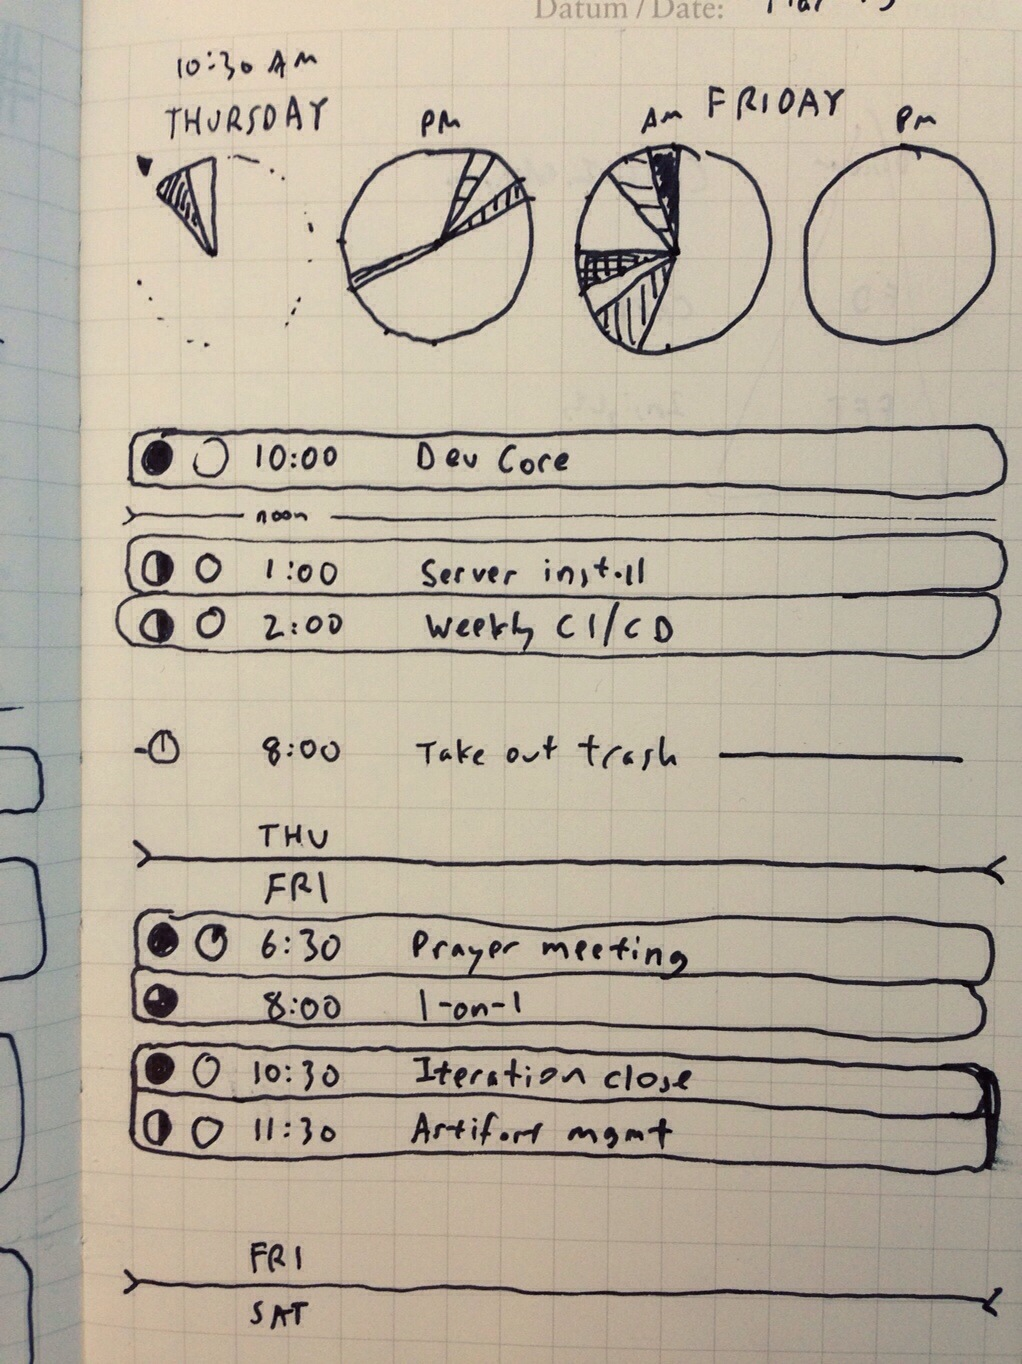 Datum / Date: Mar
10:30 AM
THURSDAY
PM
AM
FRIDAY
PM
10:00 Dev Core
noon
1:00 Server install
2:00 Weekly CI/CD
8:00 Take out trash
THU
FRI
6:30 Prayer meeting
8:00 1-on-1
10:30 Iteration close
11:30 mgmt
FRI
SAT